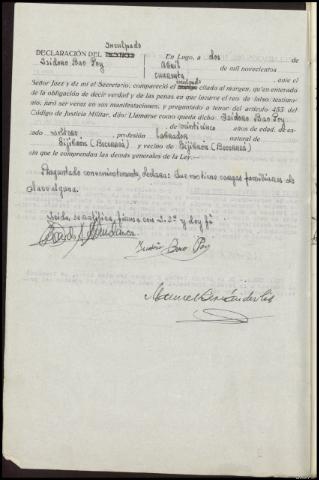 inculpado
DECLARACIÓN DEL TESTIGO
En Lugo, a dos
Isidoro Bao Poy
de abril
de mil novecientos
cuarenta, ante el
inculpado
Señor Juez y de mí el Secretario, compareció el citado al margen, quien enterado
de la obligación de decir verdad y de las penas en que incurre el reo de falso testimo-
nio, juró ser veraz en sus manifestaciones, y preguntado a tenor del artículo 453 del
Código de Justicia Militar, dijo: Llamarse como queda dicho Isidoro Bao Poy
de veinticinco años de edad, de es-
tado soltero, profesión labrador natural de
(Becerreá) y vecino de (Becerreá)
sin que le comprendan las demás generales de la Ley.
Preguntado convenientemente, declara: Que no tiene cargas familiares de
clase alguna.
Leída, se ratifica, firma con S.Sª y doy fé
Isidoro Bao Poy
Manuel